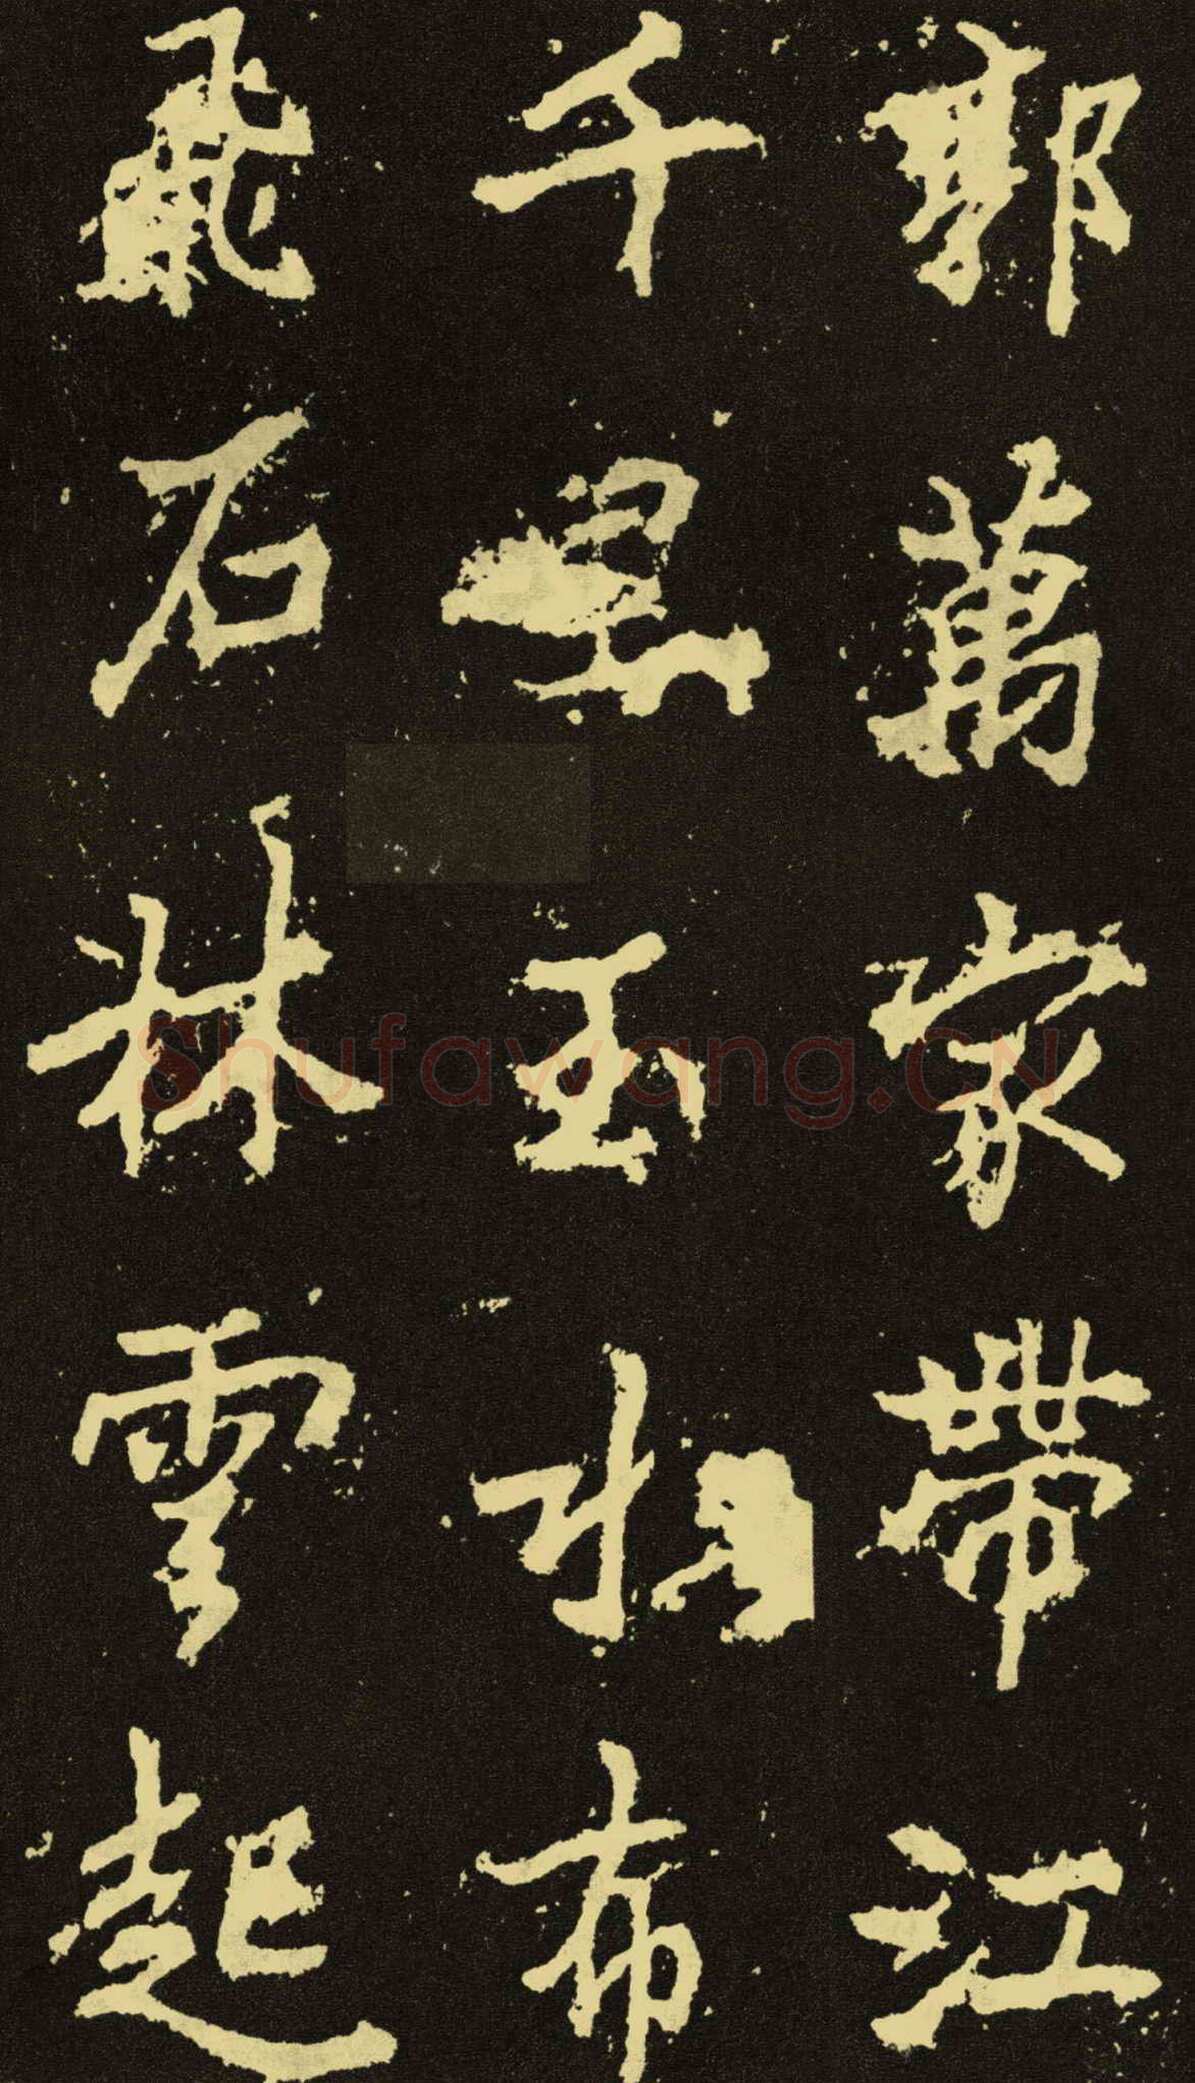 郭萬家帶江
千里玉水布
飛石林雲起
Shufawang.CN